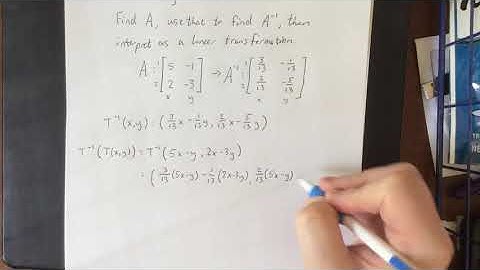 Find A, use that to find A⁻¹, then
interpret as a linear transformation
A = [5 -1; 2 -3] → A⁻¹ = [3/13 -1/13; 2/13 -5/13]
x y x y
T⁻¹(x,y) = (3/13 x - 1/13 y, 2/13 x - 5/13 y)
T⁻¹(T(x,y)) = T⁻¹(5x-y, 2x-3y)
= (3/13 (5x-y) - 1/13 (2x-3y), 2/13 (5x-y)